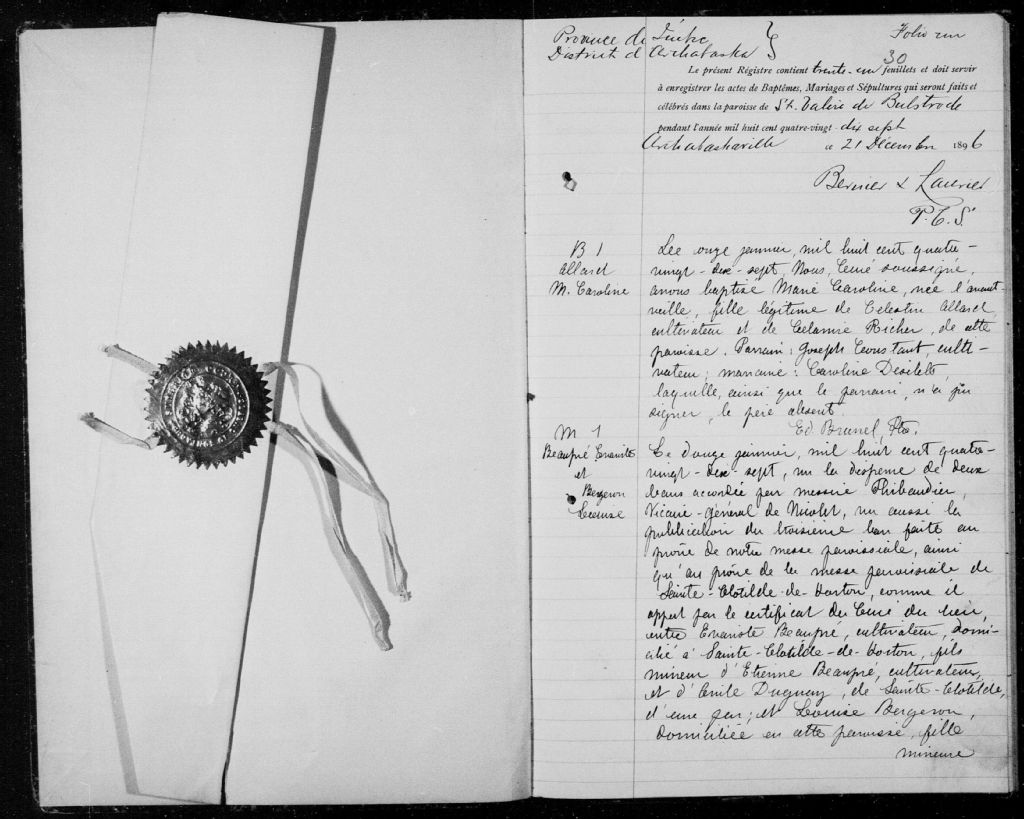 Province de Québec
District d'Arthabaska
Folio un
30
Le présent Régistre contient trente-un feuillets et doit servir
à enregistrer les actes de Baptêmes, Mariages et Sépultures qui seront faits et
célébrés dans la paroisse de St. Valère de Bulstrode
pendant l'année mil huit cent quatre-vingt-dix sept
Arthabaskaville ce 21 Décembre 1896
Bernier & Laurier
P.C.S.
B 1
Allard
M. Caroline
Lee onze janvier, mil huit cent quatre-
vingt-dix-sept, Nous, Curé soussigné,
avons baptisé Marie Caroline, née l'avant-
veille, fille légitime de Célestin Allard,
cultivateur et de Célanire Richer, de cette
paroisse. Parrain: Joseph Constant, culti-
vateur; marraine: Caroline Désilets
laquelle, ainsi que le parrain, n'a pu
signer, le père absent.
Ed. Brunel, Ptre.
M 1
Beaupré Evariste
et
Bergeron
Louise
Le douze janvier, mil huit cent quatre-
vingt-dix-sept, vu la dispense de deux
bans accordée par messire Thibaudier,
Vicaire-général de Nicolet, vu aussi la
publication du troisième ban faite au
prône de notre messe paroissiale, ainsi
qu'au prône de la messe paroissiale de
Sainte-Clotilde-de-Horton, comme il
appert par le certificat du Curé du lieu,
entre Evariste Beaupré, cultivateur, domi-
cilié à Sainte-Clotilde-de-Horton, fils
mineur d'Etienne Beaupré, cultivateur,
et d'Emile Duguay, de Sainte-Clotilde,
d'une part; et Louise Bergeron,
domiciliée en cette paroisse, fille
mineure